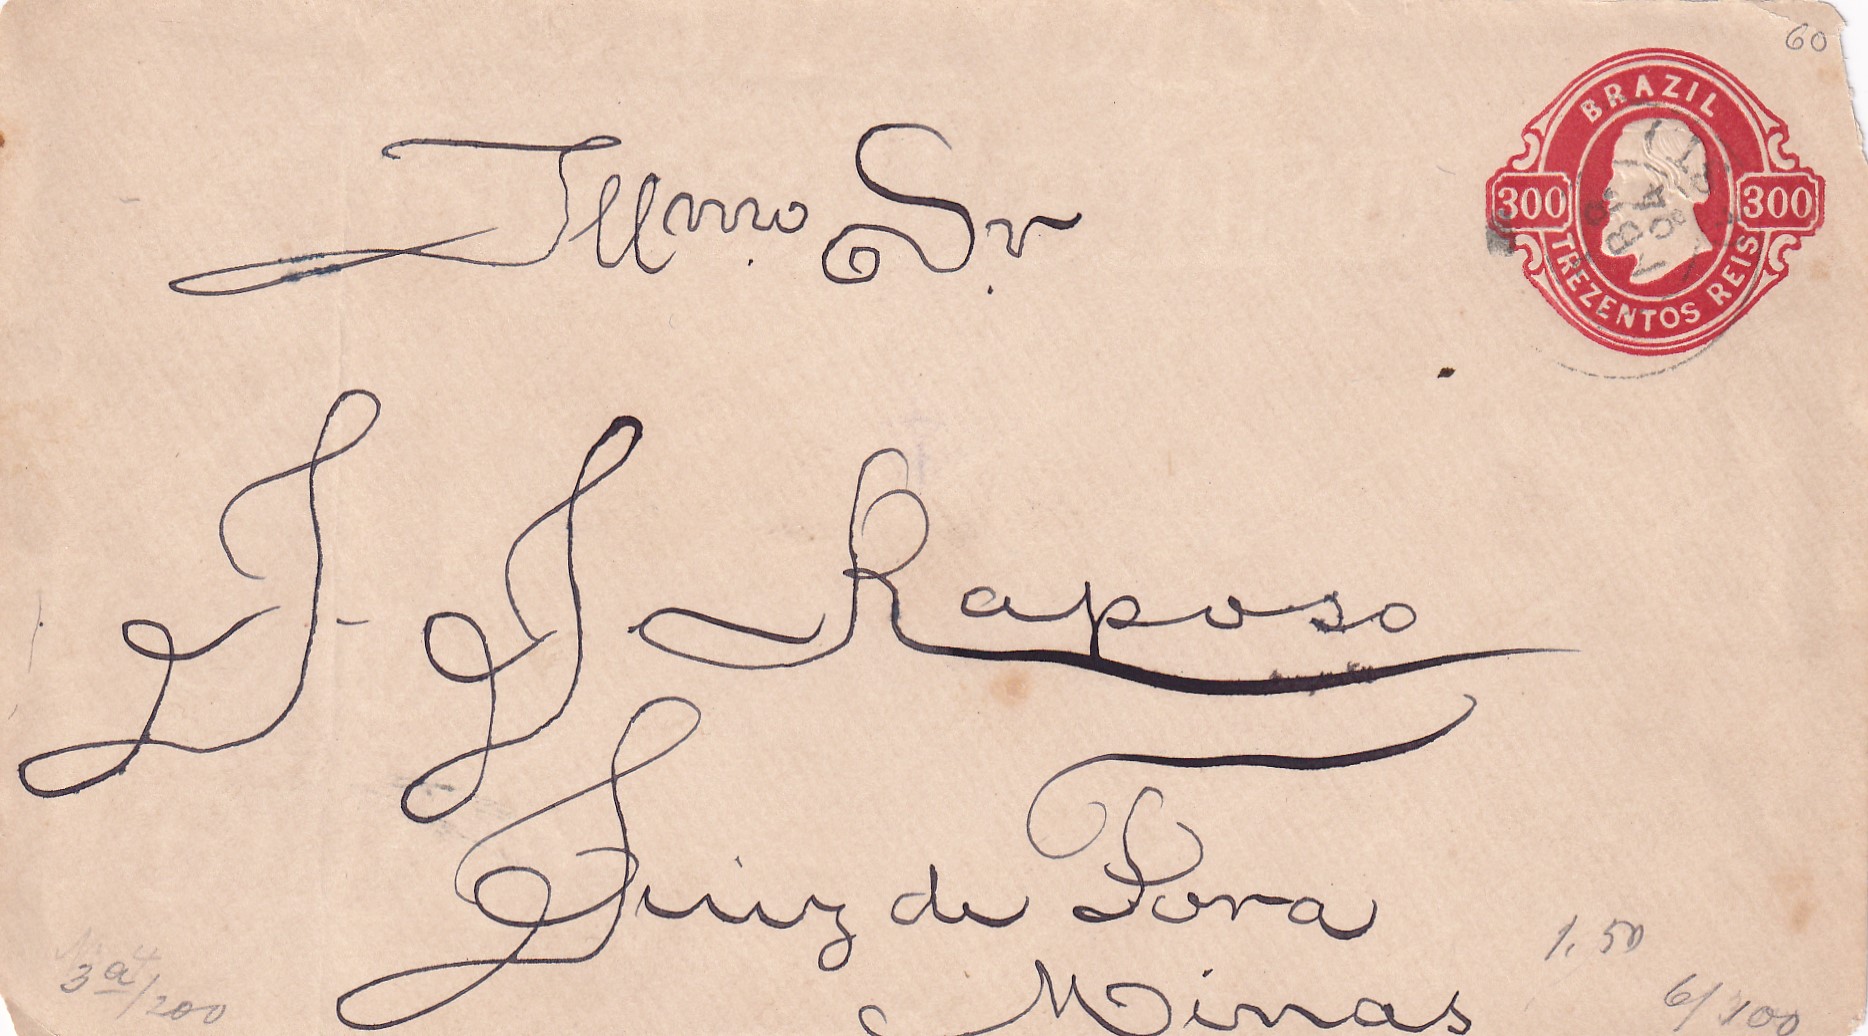 60
BRAZIL
300 300
TREZENTOS REIS
Illmo. Sr.
J. J. Raposo
Juiz de Fora
Minas
1.50
3a/200
6/100